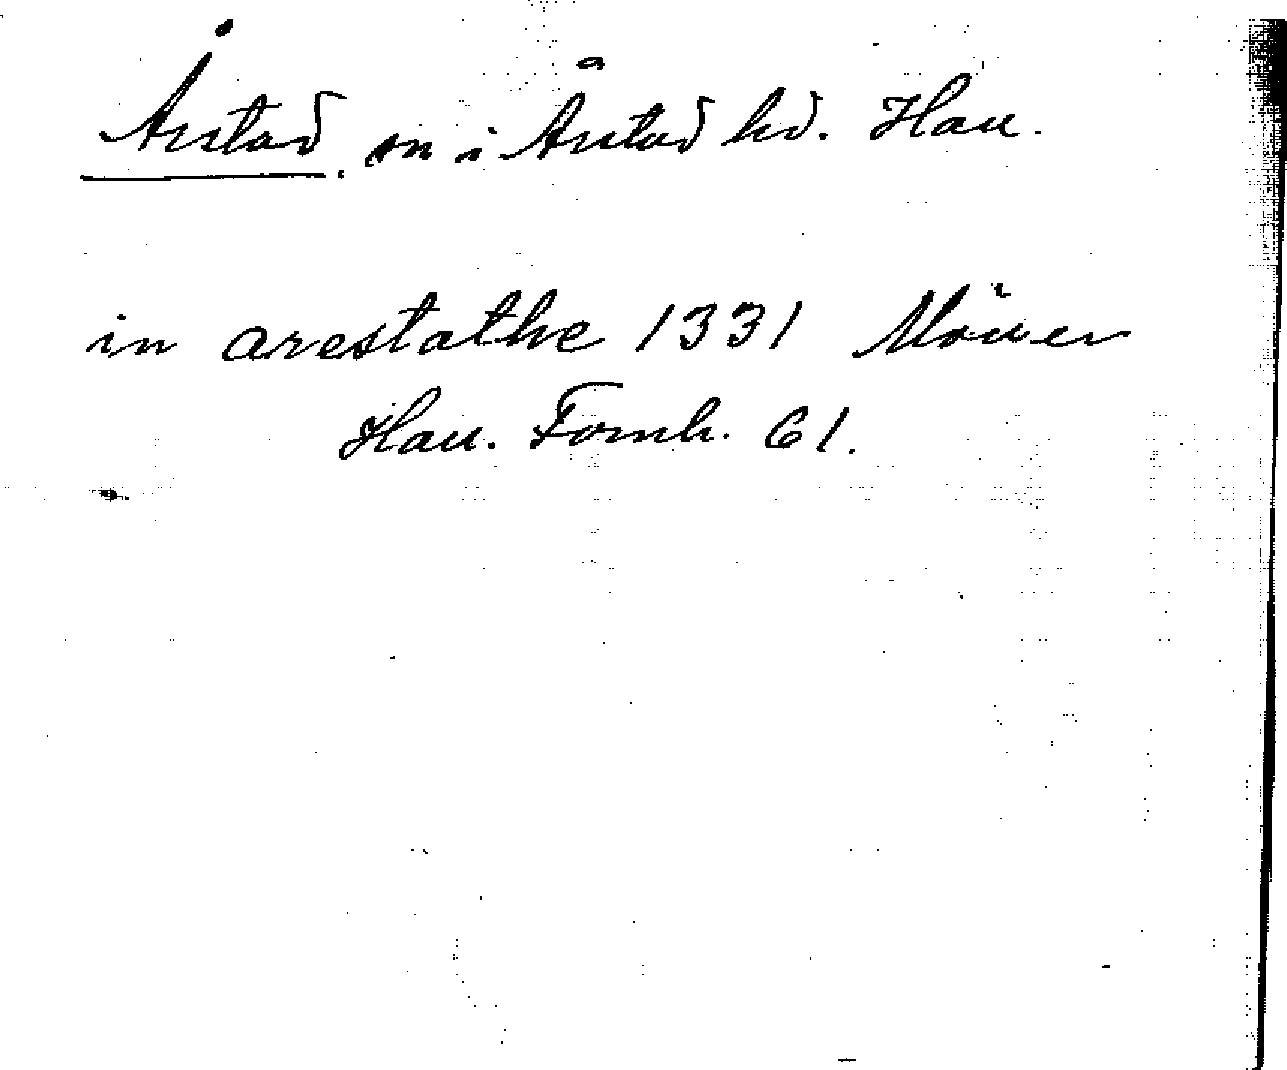 Årstad, sn i Årstad hd. Hall.
in arestathe 1331 Möller
Hall. Fornh. 61.